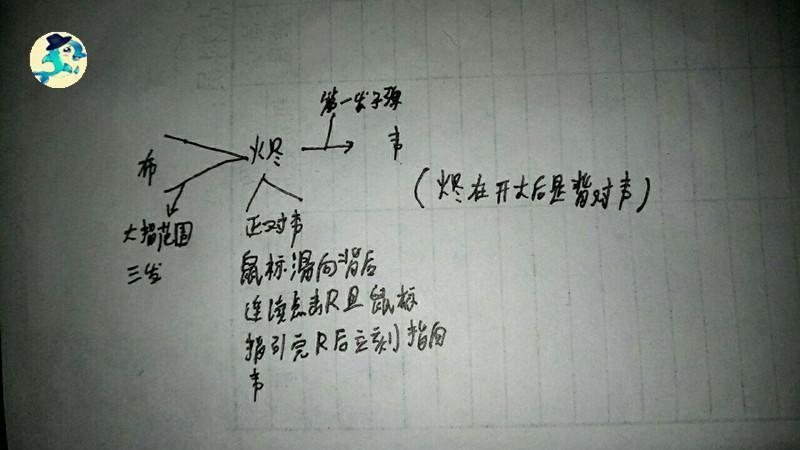 第一发子弹
布
烬
韦
(烬在开大后是背对韦)
大招范围
三发
正对韦
鼠标滑向背后
连续点击R且鼠标
指引完R后立刻指向
韦